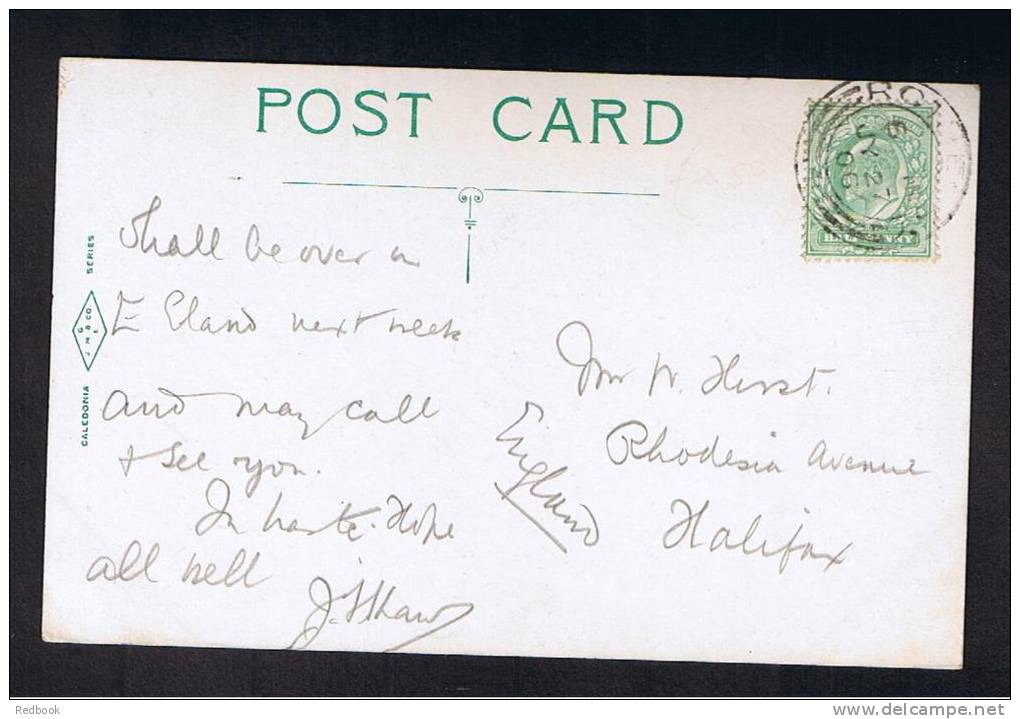 POST CARD
Shall be over in
E Eland next week
and may call
& see you.
In haste. Hope
all well
J. Shaw
Mr W. Hirst.
Rhodesia Avenue
Halifax
England
CALEDONIA SERIES
G
J. M. & CO.
E
JY 2
06
HALFPENNY
Redbook
delcampe.net